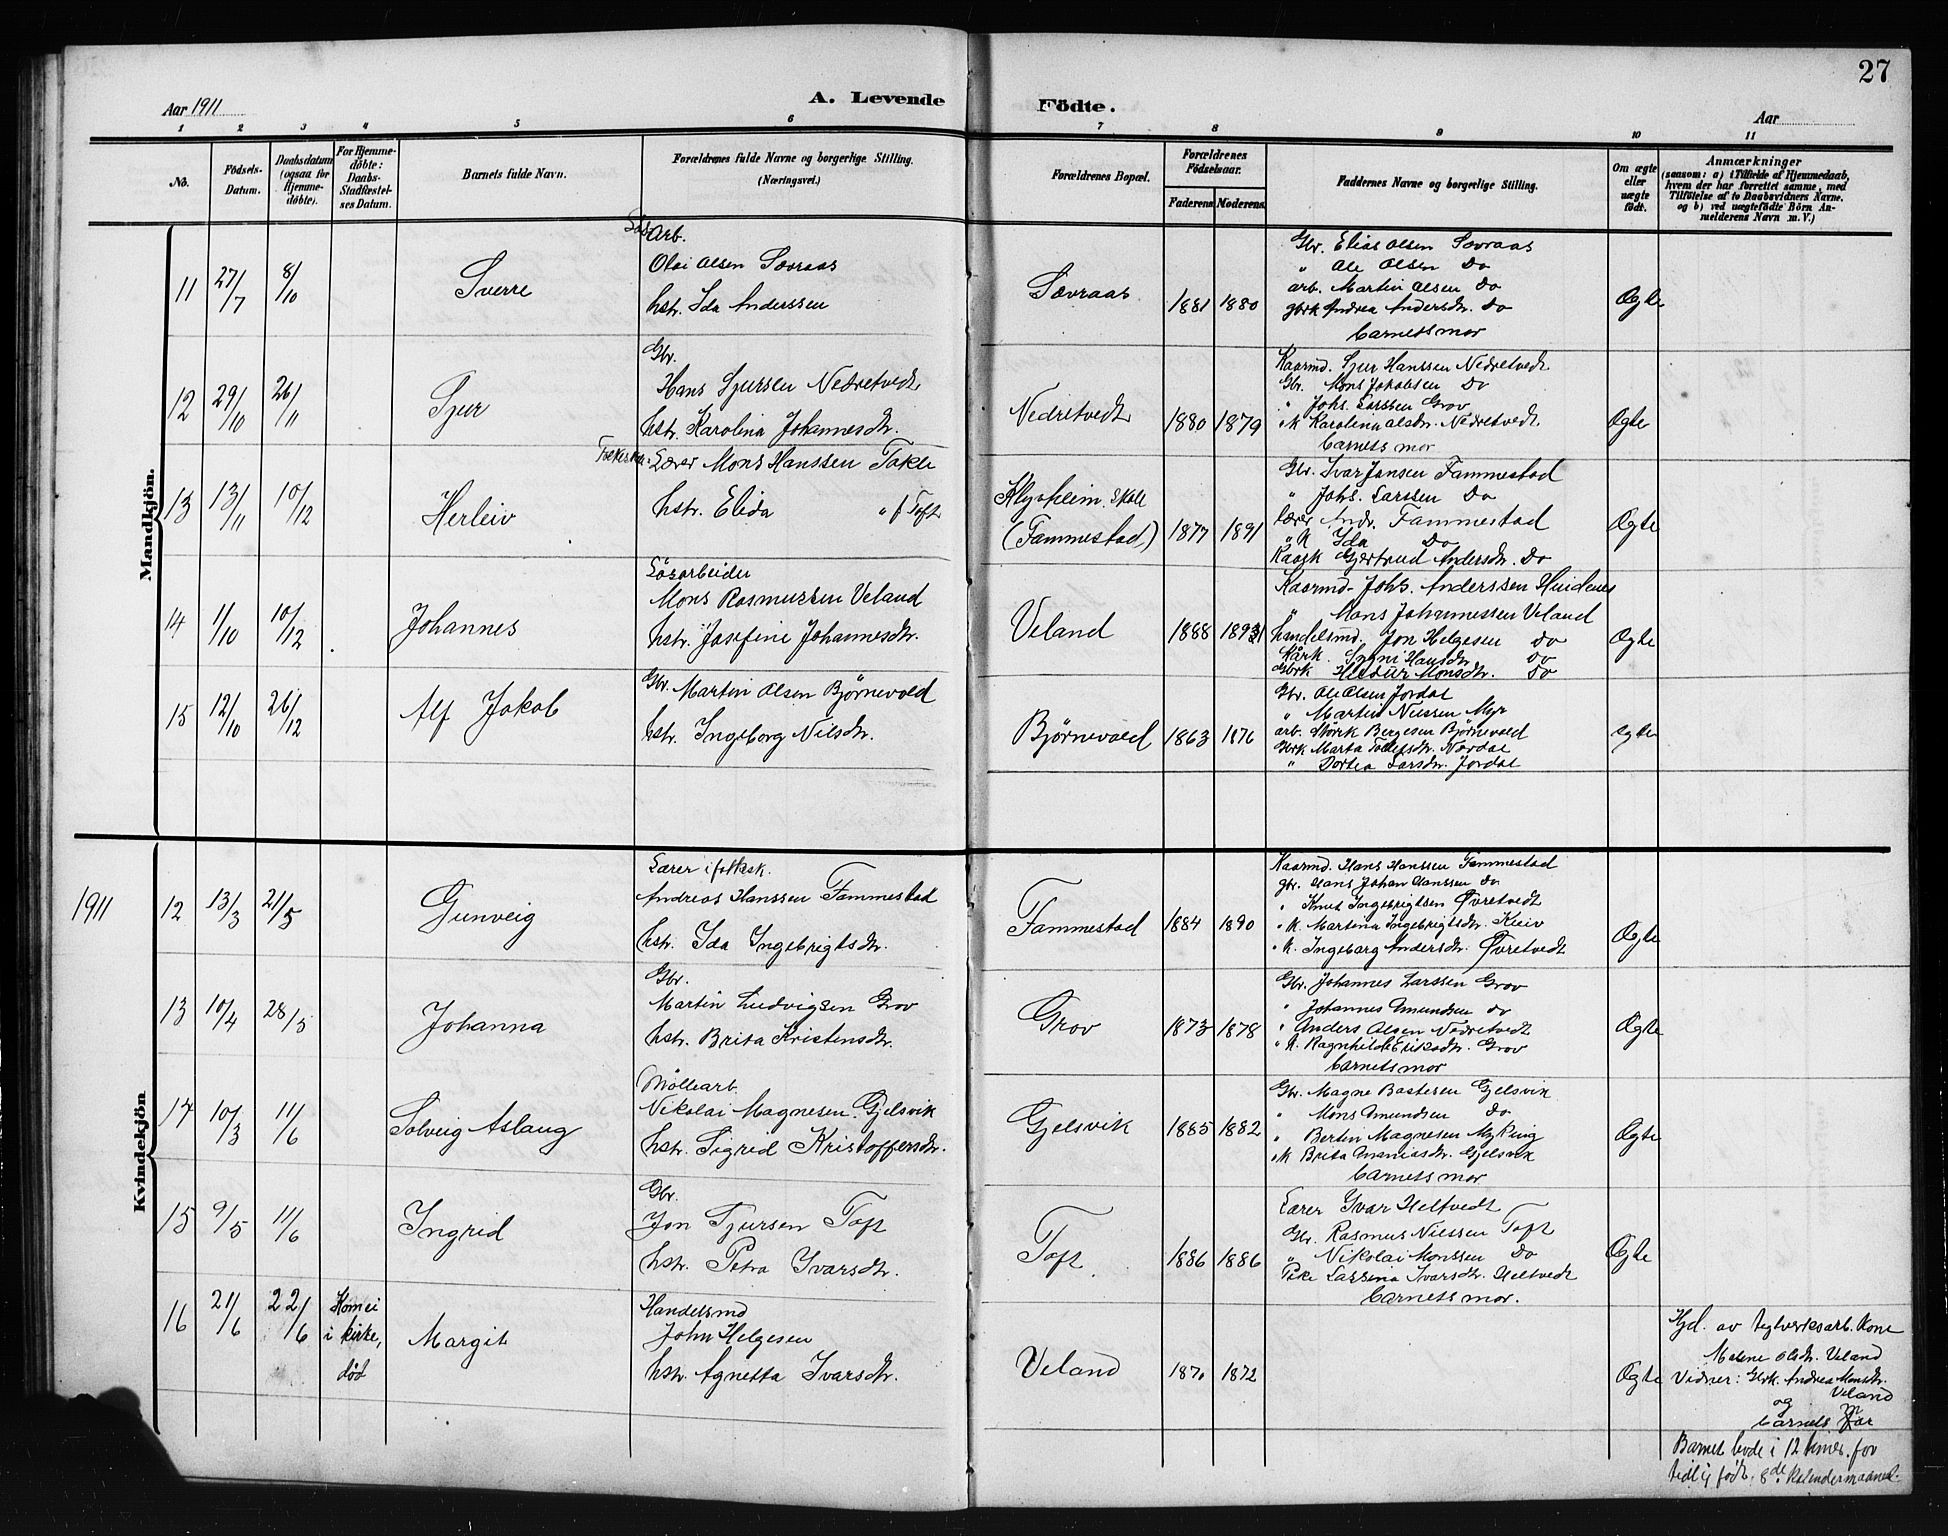 27
Aar 1911
A. Levende
Födte.
Aar
1 2 3 4 5 6 7 8 9 10 11
No.
Födsels-
Datum.
Daabsdatum
(ogsaa for
Hjemme-
døbte).
For Hjemme-
døbte:
Daabs-
Stadfæstel-
ses Datum.
Barnets fulde Navn.
Forældrenes fulde Navne og borgerlige Stilling.
(Næringsvei.)
Forældrenes Bopæl.
Forældrenes
Födselsaar.
Faderens Moderens.
Faddernes Navne og borgerlige Stilling.
Om ægte
eller
uægte
født.
Anmærkninger
(saasom: a) i Tilfælde af Hjemmedaab,
hvem der har forrettet samme, med
Tilföielse af to Daabsvidners Navne.
og b) ved uægtefödte Börn An-
melderens Navn m. V.)
Mandkjön.
11 27/7 8/10 Sverre
arb.
Olai Olsen Sævraas
hstr. Ida Anderssen
Sævraas 1881 1880
Gbr. Elias Olsen Sævraas
" Ole Olsen Do
arb. Martin Olsen Do
gbrk Andrea Andersdtr. Do
barnets mor
Ægte
12 29/10 26/11 Sjur
Gbr.
Hans Sjursen Nedretvedt
hstr. Karolina Johannesdtr.
Nedretvedt 1880 1879
Kaarmd. Sjur Hanssen Nedretvedt
Gbr. Mons Jakobsen Do
" Johs. Larssen Grov
" k Karolina Olsdtr. Nedretvedt
barnets mor
Ægte
13 13/11 10/12 Herleiv
Lærer Mons Hanssen Takle
hstr. Elida " f. Toft
Skole
(Fammestad) 1877 1891
Gbr. Ivar Jansen Fammestad
" Johs. Larssen Do
lærer Andr. Fammestad
" k Ida Do
Kaark Gjertrud Andersdtr. Do
Ægte
14 11/10 10/12 Johannes
Løsarbeider
Mons Rasmussen Veland
hstr. Josefine Johannesdtr.
Veland 1888
Kaarmd. Johs. Anderssen Hindenes
" Hans Johannessen Veland
handelsmd. Jon Helgesen do
Kårk. Sygni Hansdtr. do
Gbrk Monsdtr. do
Ægte
15 12/10 26/12 Alf Jakob
Gbr. Martin Olsen Bjørnevold
hstr. Ingeborg Nilsdtr.
Bjørnevold 1863 1876
Gbr. Ole Olsen Jordal
" Martin Nilssen Myr
arb. Størk Bergesen Bjørnevold
Gbrk Marta Tollefsdtr. Nordal
" Dortea Larsdtr. Jordal
egte
Kvindekjön
1911
12 13/3 21/5 Gunveig
Lærer i folkesk.
Andreas Hanssen Fammestad
hstr. Ida Ingebrigtsdtr.
Fammestad 1884 1890
Kaarmd. Hans Hanssen Fammestad
gbr. Hans Johan Hanssen do
" Knut Ingebrigtsen Øvretvedt
" k. Martina Ingebrigtsdtr.
" k. Ingeborg Andersdtr. Øvretvedt
Ægte
13 10/4 28/5 Johanna
Gbr.
Martin Ludvigsen Grov
hstr. Brita Kristensdtr.
Grov 1873 1878
Gbr. Johannes Larssen Grov
" Johannes Amundsen do
" Anders Olsen Nedretvedt
" k. Ragnhilde Eriksdtr. Grov
barnets mor
Ægte
14 10/3 11/6 Solveig Aslaug
Møllearb.
Nikolai Magnesen Gjelsvik
hstr. Sigrid Kristoffersdtr.
Gjelsvik 1885 1882
Gbr. Magne Gjelsvik
" Mons Amundsen Do
" Bertin Magnesen Myking
" k Brita Gjelsvik
barnets mor
Ægte
15 9/5 11/6 Ingrid
Gbr.
Jon Sjursen Toft
hstr. Petra Ivarsdtr.
Toft 1886 1886
Lærer Ivar Heltvedt
Gbr. Rasmus Nilssen Toft
" Nikolai Monssen Do
Pike Larsina Ivarsdtr. Heltvedt
barnets mor.
Ægte
16 21/6 22/6
Kom ei
i kirke,
død
Margit
Handelsmd
John Helgesen
hstr. Agnetta Ivarsdtr.
Veland 1872
Ægte
Hjd. av teglverksarb. kone
Malene Olsdtr. Veland
Vidner: Gbrk. Andrea Monsdtr.
Veland
og
barnets
Barnet levde i 12 timer. for
tidlig født. 8de kalendermaaned.